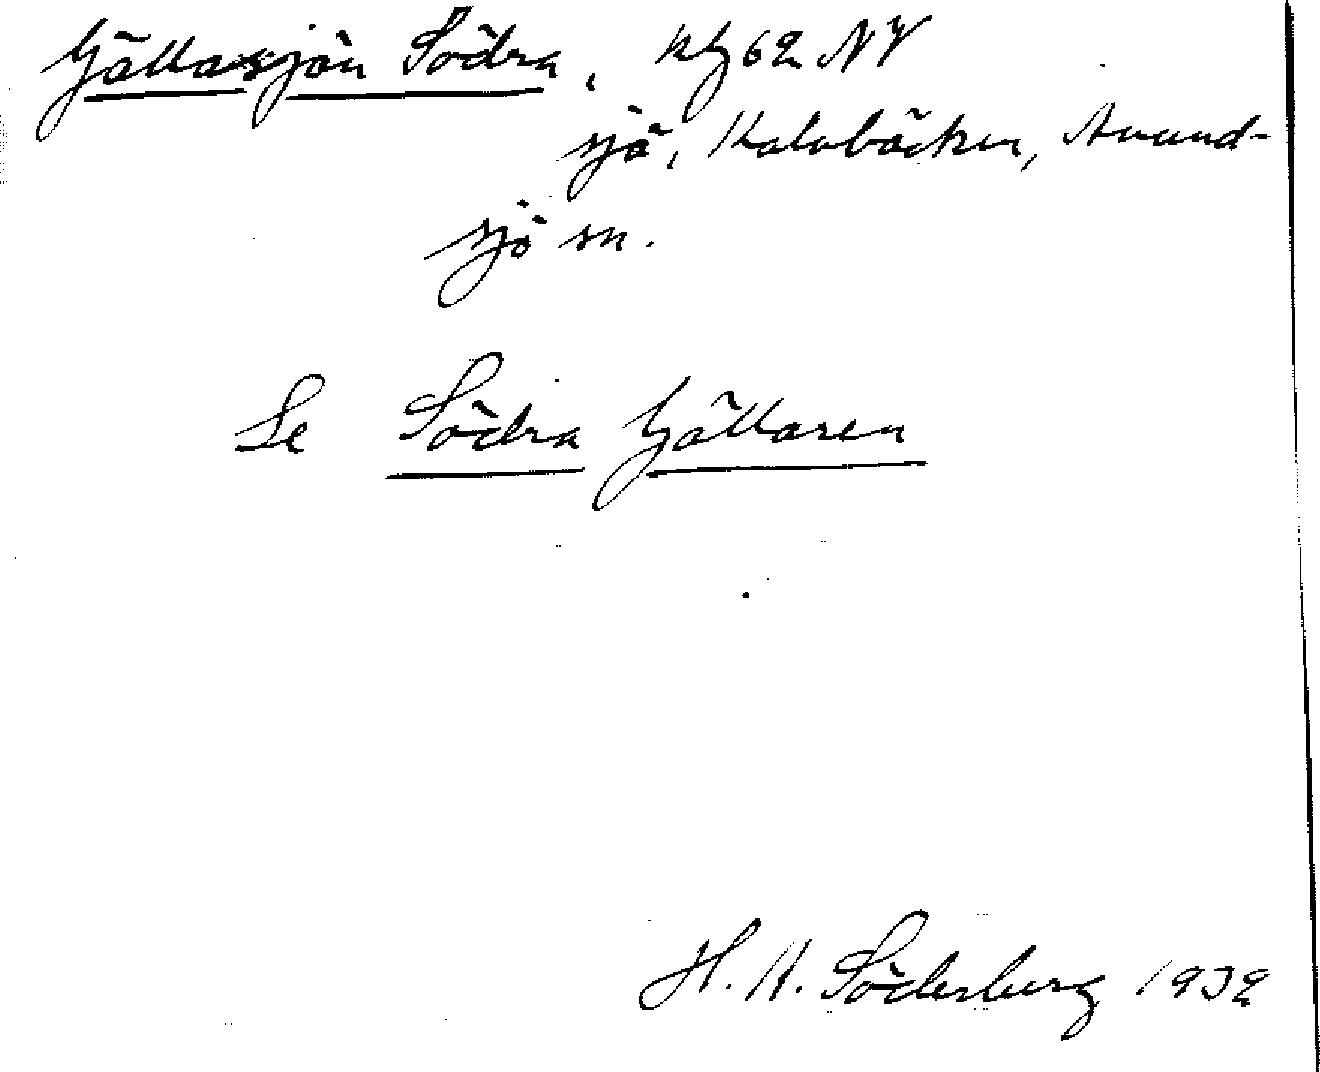 Gällasjön Södra, 62 NV
sjö, Kalvbäcken, Anund-
sjö sn.
Se Södra Gällaren
H. A. Söderberg 1932